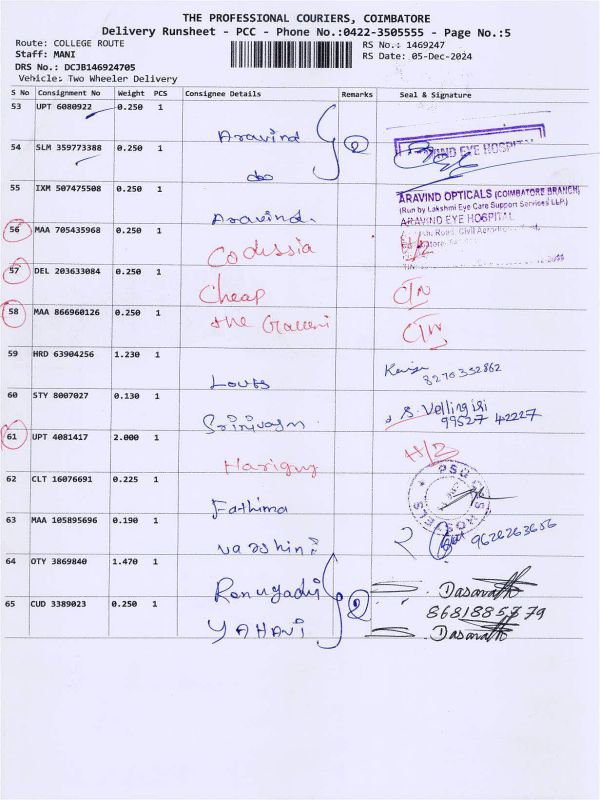 THE PROFESSIONAL COURIERS, COIMBATORE
Delivery Runsheet - PCC - Phone No.:0422-3505555 - Page No.:5
Route: COLLEGE ROUTE
RS No.: 1469247
Staff: MANI
RS Date: 05-Dec-2024
DRS No.: DCJB146924705
Vehicle: Two Wheeler Delivery
S No Consignment No Weight PCS Consignee Details Remarks Seal & Signature
53 UPT 6080922 0.250 1 Aravind 2
ARAVIND EYE HOSPITAL
54 SLM 359773388 0.250 1 do
55 IXM 507475508 0.250 1 Aravind.
ARAVIND OPTICALS (COIMBATORE BRANCH)
(Run by Lakshmi Eye Care Support Services LLP.)
ARAVIND EYE HOSPITAL
56 MAA 705435968 0.250 1 Codissia
57 DEL 203633084 0.250 1 Cheap
58 MAA 866960126 0.250 1 the
59 HRD 63904256 1.230 1
60 STY 8007027 0.130 1 S. Vellingiri
99527 42227
61 UPT 4081417 2.000 1 H/2
62 CLT 16076691 0.225 1 Fathima
63 MAA 105895696 0.190 1 varshini 9626263656
64 OTY 3869840 1.470 1 Renugadvi 2 Dasarath
8681885779
65 CUD 3389023 0.250 1 YAHAVi Dasarath